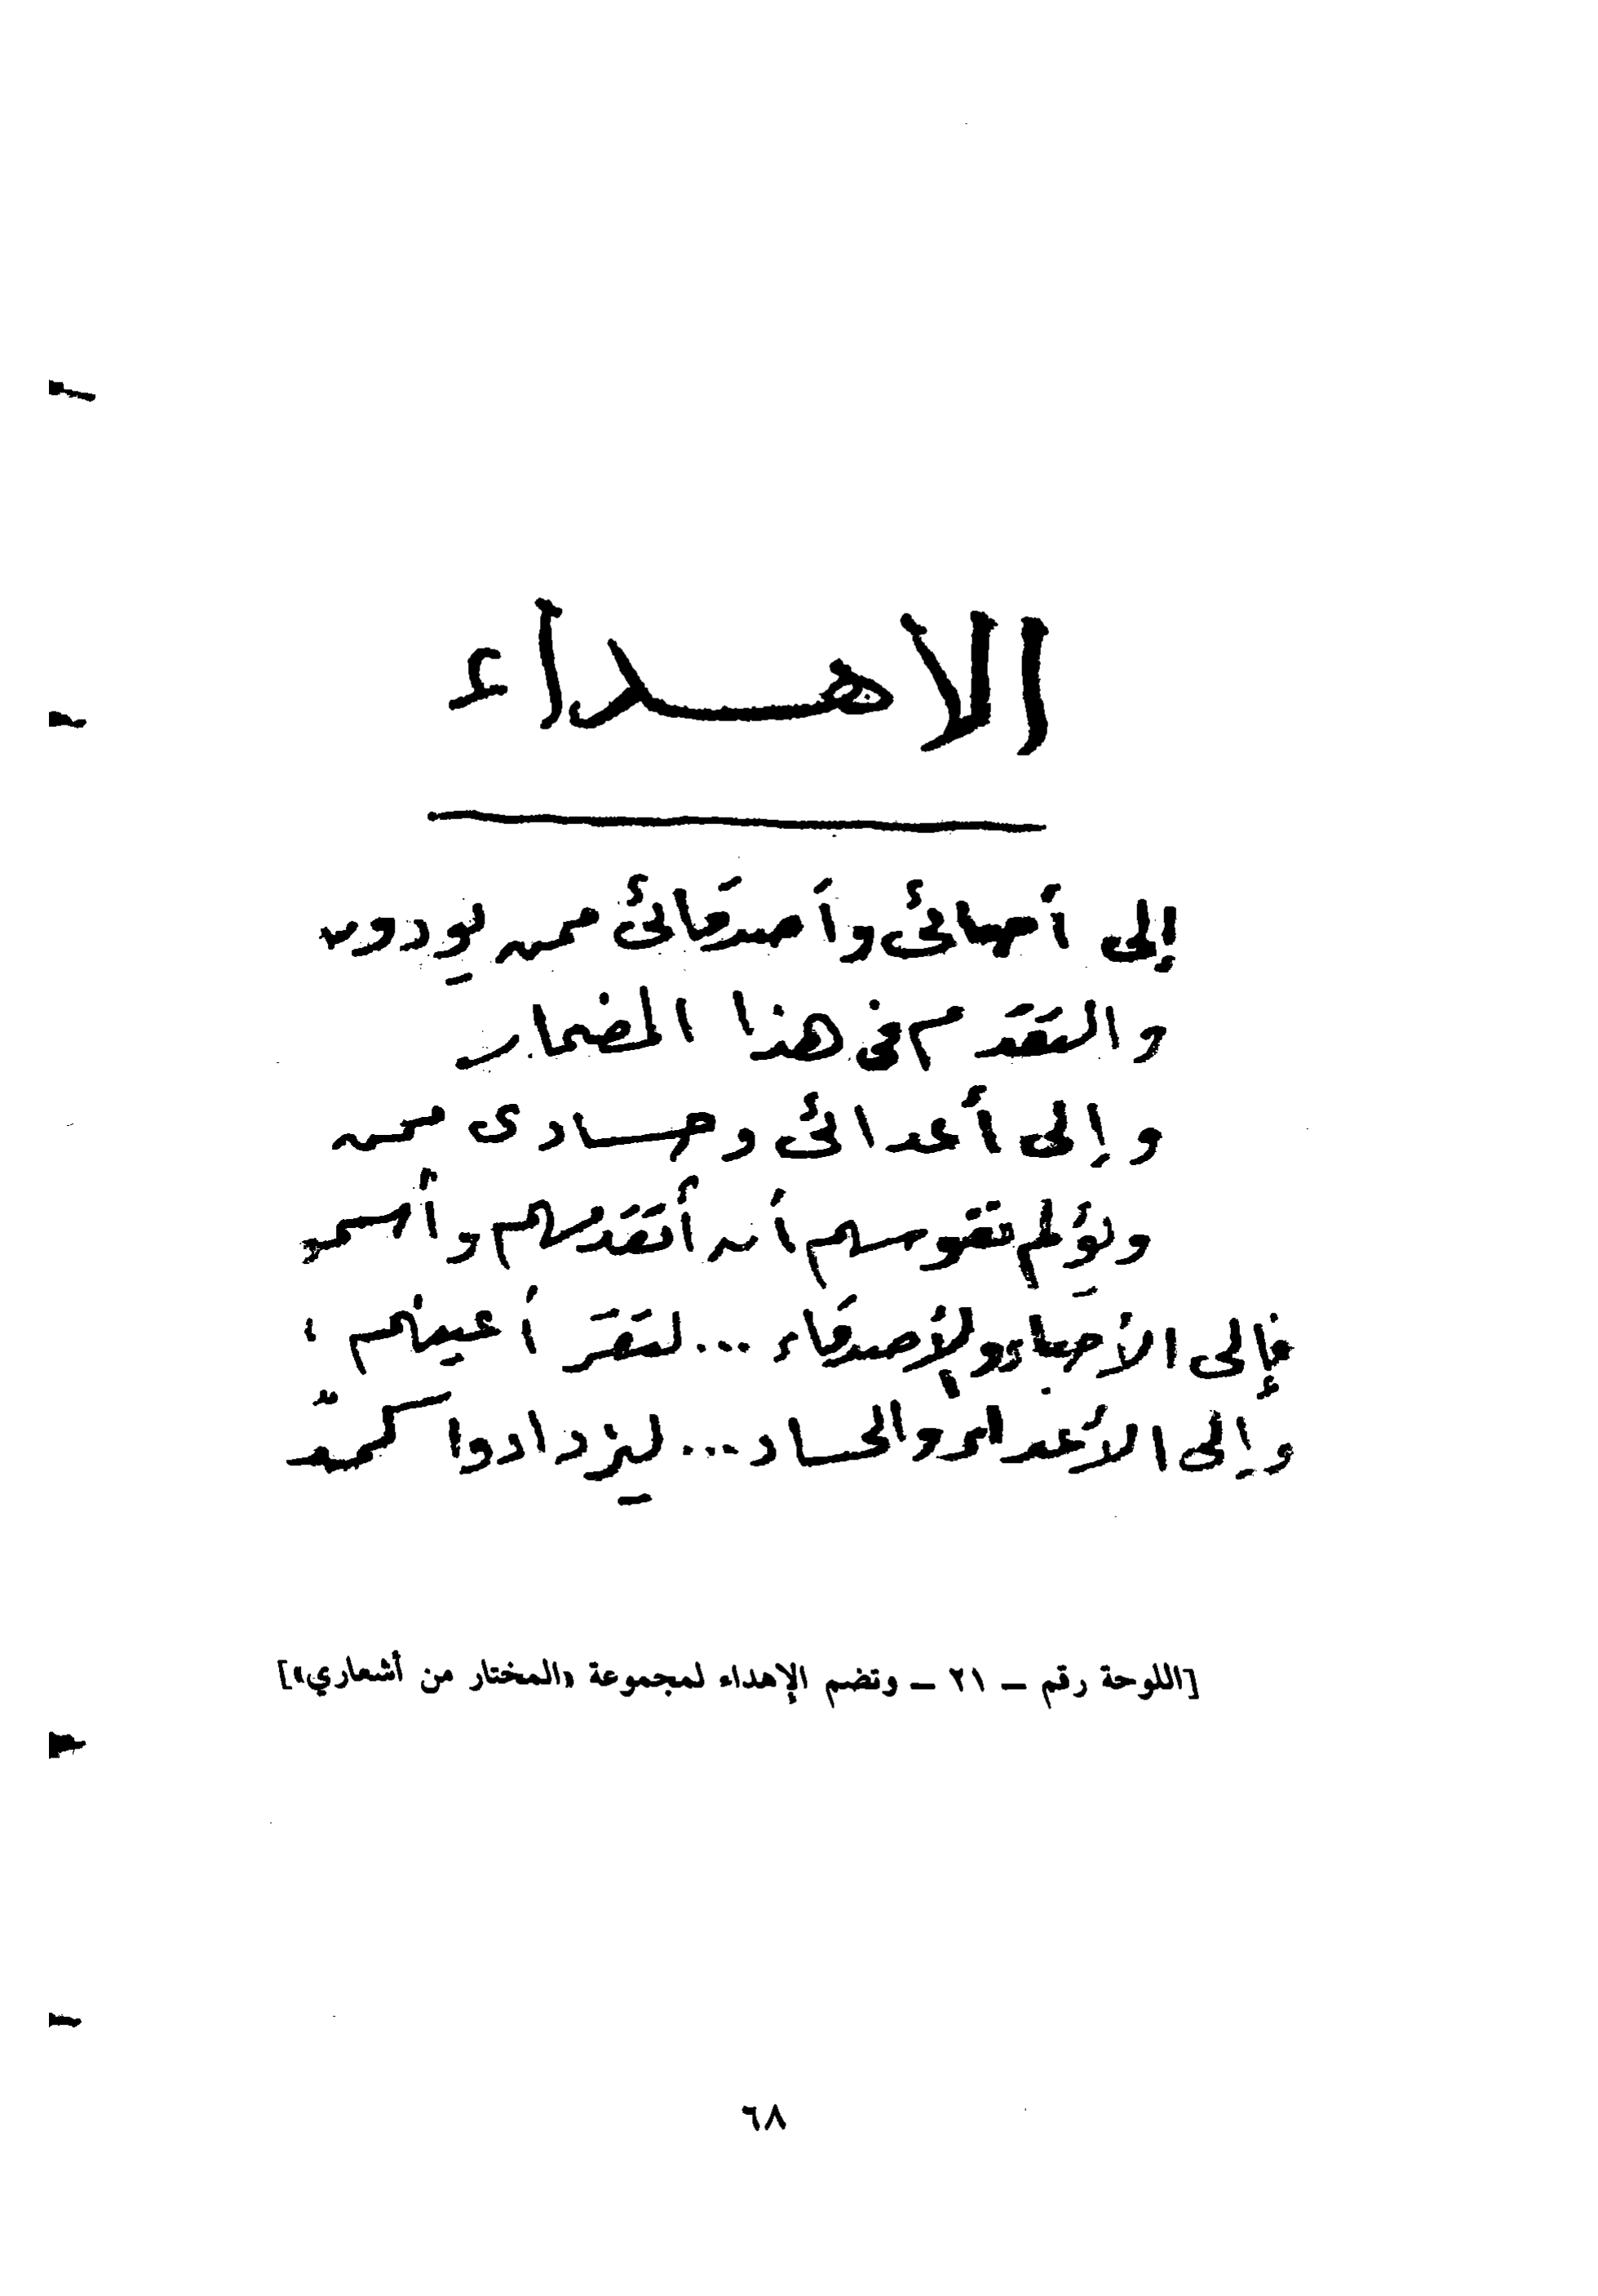 الاهداء
إلى أحبائى وأصدقائى ممن يودون
والتقدم فى هذا المضمار
وإلى أعدائى وحسادى ممن
ويؤلم نفوسهم أن أتقدمهم وأسمو
فإلى الأحباء والأصدقاء ... لتقر أعينهم ،
وإلى الأعداء والحساد ... ليزدادوا
[اللوحة رقم – ٢١ – وتضم الإهداء لمجموعة «المختار من أشعاري»]
٦٨